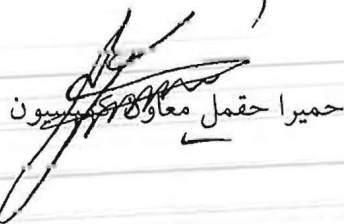 حمیرا حقمل معاون کمیسیون